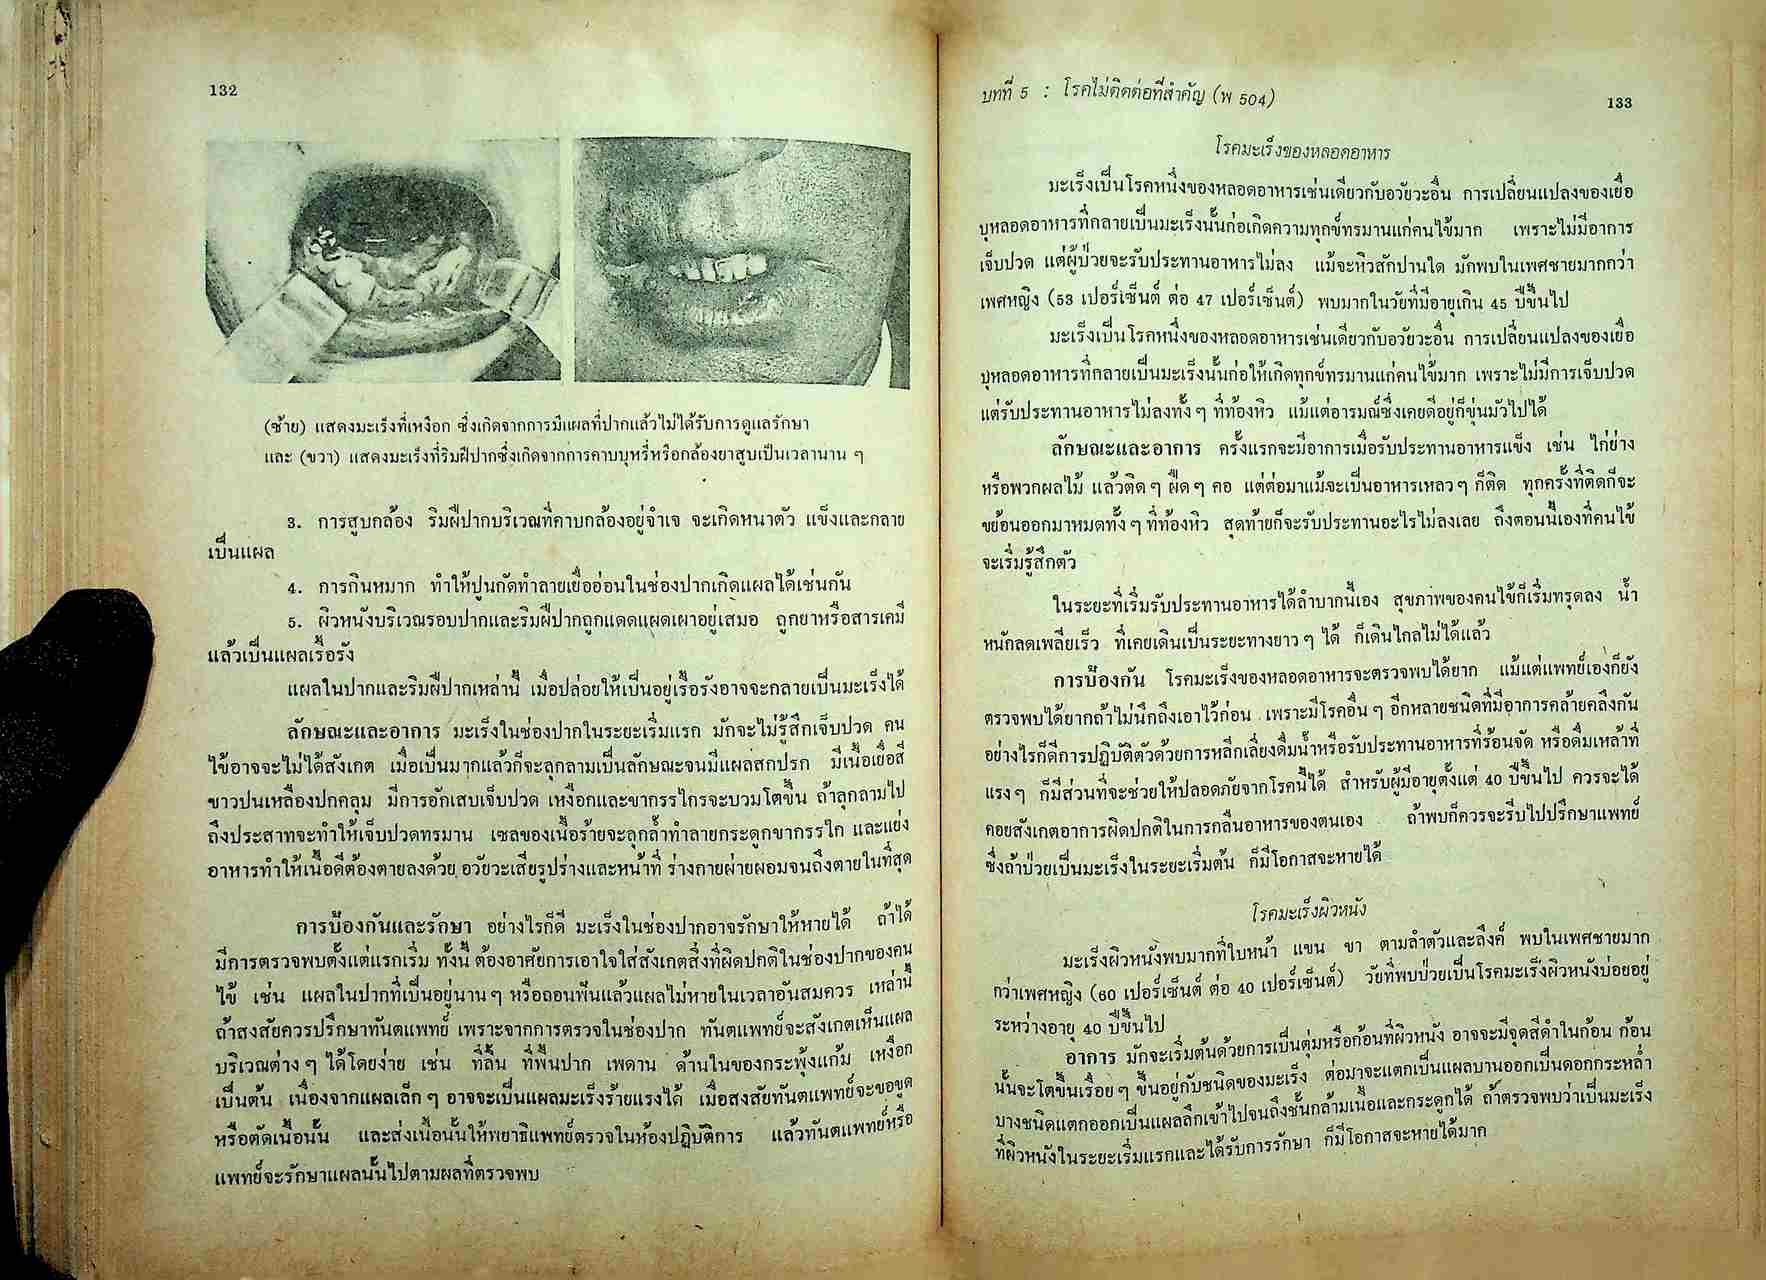 132
(ซ้าย) แสดงมะเร็งที่เหงือก ซึ่งเกิดจากการมีแผลที่ปากแล้วไม่ได้รับการดูแลรักษา
และ (ขวา) แสดงมะเร็งที่ริมฝีปากซึ่งเกิดจากการคาบบุหรี่หรือกล้องยาสูบเป็นเวลานาน ๆ
3. การสูบกล้อง ริมฝีปากบริเวณที่คาบกล้องอยู่จำเจ จะเกิดหนาตัว แข็งและกลาย
เป็นแผล
4. การกินหมาก ทำให้ปูนกัดทำลายเยื่ออ่อนในช่องปากเกิดแผลได้เช่นกัน
5. ผิวหนังบริเวณรอบปากและริมฝีปากถูกแดดแผดเผาอยู่เสมอ ถูกยาหรือสารเคมี
แล้วเป็นแผลเรื้อรัง
แผลในปากและริมฝีปากเหล่านี้ เมื่อปล่อยให้เป็นอยู่เรื้อรังอาจจะกลายเป็นมะเร็งได้
ลักษณะและอาการ มะเร็งในช่องปากในระยะเริ่มแรก มักจะไม่รู้สึกเจ็บปวด คน
ไข้อาจจะไม่ได้สังเกต เมื่อเป็นมากแล้วก็จะลุกลามเป็นลักษณะจนมีแผลสกปรก มีเนื้อเยื่อสี
ขาวปนเหลืองปกคลุม มีการอักเสบเจ็บปวด เหงือกและขากรรไกรจะบวมโตขึ้น ถ้าลุกลามไป
ถึงประสาทจะทำให้เจ็บปวดทรมาน เซลของเนื้อร้ายจะลุกล้ำทำลายกระดูกขากรรไก และแย่ง
อาหารทำให้เนื้อดีต้องตายลงด้วย อวัยวะเสียรูปร่างและหน้าที่ ร่างกายผ่ายผอมจนถึงตายในที่สุด
การป้องกันและรักษา อย่างไรก็ดี มะเร็งในช่องปากอาจรักษาให้หายได้ ถ้าได้
มีการตรวจพบตั้งแต่แรกเริ่ม ทั้งนี้ ต้องอาศัยการเอาใจใส่สังเกตสิ่งที่ผิดปกติในช่องปากของคน
ไข้ เช่น แผลในปากที่เป็นอยู่นาน ๆ หรือถอนฟันแล้วแผลไม่หายในเวลาอันสมควร เหล่านี้
ถ้าสงสัยควรปรึกษาทันตแพทย์ เพราะจากการตรวจในช่องปาก ทันตแพทย์จะสังเกตเห็นแผล
บริเวณต่าง ๆ ได้โดยง่าย เช่น ที่ลิ้น ที่พื้นปาก เพดาน ด้านในของกระพุ้งแก้ม เหงือก
เป็นต้น เนื่องจากแผลเล็ก ๆ อาจจะเป็นแผลมะเร็งร้ายแรงได้ เมื่อสงสัยทันตแพทย์จะขอขูด
หรือตัดเนื้อนั้น และส่งเนื้อนั้นให้พยาธิแพทย์ตรวจในห้องปฏิบัติการ แล้วทันตแพทย์หรือ
แพทย์จะรักษาแผลนั้นไปตามผลที่ตรวจพบ
บทที่ 5 : โรคไม่ติดต่อที่สำคัญ (พ 504)
133
โรคมะเร็งของหลอดอาหาร
มะเร็งเป็นโรคหนึ่งของหลอดอาหารเช่นเดียวกับอวัยวะอื่น การเปลี่ยนแปลงของเยื่อ
บุหลอดอาหารที่กลายเป็นมะเร็งนั้นก่อเกิดความทุกข์ทรมานแก่คนไข้มาก เพราะไม่มีอาการ
เจ็บปวด แต่ผู้ป่วยจะรับประทานอาหารไม่ลง แม้จะหิวสักปานใด มักพบในเพศชายมากกว่า
เพศหญิง (53 เปอร์เซ็นต์ ต่อ 47 เปอร์เซ็นต์) พบมากในวัยที่มีอายุเกิน 45 ปีขึ้นไป
มะเร็งเป็นโรคหนึ่งของหลอดอาหารเช่นเดียวกับอวัยวะอื่น การเปลี่ยนแปลงของเยื่อ
บุหลอดอาหารที่กลายเป็นมะเร็งนั้นก่อให้เกิดทุกข์ทรมานแก่คนไข้มาก เพราะไม่มีการเจ็บปวด
แต่รับประทานอาหารไม่ลงทั้ง ๆ ที่ท้องหิว แม้แต่อารมณ์ซึ่งเคยดีอยู่ก็ขุ่นมัวไปได้
ลักษณะและอาการ ครั้งแรกจะมีอาการเมื่อรับประทานอาหารแข็ง เช่น ไก่ย่าง
หรือพวกผลไม้ แล้วติด ๆ ฝืด ๆ คอ แต่ต่อมาแม้จะเป็นอาหารเหลว ๆ ก็ติด ทุกครั้งที่ติดก็จะ
ขย้อนออกมาหมดทั้ง ๆ ที่ท้องหิว สุดท้ายก็จะรับประทานอะไรไม่ลงเลย ถึงตอนนี้เองที่คนไข้
จะเริ่มรู้สึกตัว
ในระยะที่เริ่มรับประทานอาหารได้ลำบากนี้เอง สุขภาพของคนไข้ก็เริ่มทรุดลง น้ำ
หนักลดเพลียเร็ว ที่เคยเดินเป็นระยะทางยาว ๆ ได้ ก็เดินไกลไม่ได้แล้ว
การป้องกัน โรคมะเร็งของหลอดอาหารจะตรวจพบได้ยาก แม้แต่แพทย์เองก็ยัง
ตรวจพบได้ยากถ้าไม่นึกถึงเอาไว้ก่อน เพราะมีโรคอื่น ๆ อีกหลายชนิดที่มีอาการคล้ายคลึงกัน
อย่างไรก็ดีการปฏิบัติตัวด้วยการหลีกเลี่ยงดื่มน้ำหรือรับประทานอาหารที่ร้อนจัด หรือดื่มเหล้าที่
แรง ๆ ก็มีส่วนที่จะช่วยให้ปลอดภัยจากโรคนี้ได้ สำหรับผู้มีอายุตั้งแต่ 40 ปีขึ้นไป ควรจะได้
คอยสังเกตอาการผิดปกติในการกลืนอาหารของตนเอง ถ้าพบก็ควรจะรีบไปปรึกษาแพทย์
ซึ่งถ้าป่วยเป็นมะเร็งในระยะเริ่มต้น ก็มีโอกาสจะหายได้
โรคมะเร็งผิวหนัง
มะเร็งผิวหนังพบมากที่ใบหน้า แขน ขา ตามลำตัวและลึงค์ พบในเพศชายมาก
กว่าเพศหญิง (60 เปอร์เซ็นต์ ต่อ 40 เปอร์เซ็นต์) วัยที่พบป่วยเป็นโรคมะเร็งผิวหนังบ่อยอยู่
ระหว่างอายุ 40 ปีขึ้นไป
อาการ มักจะเริ่มต้นด้วยการเป็นตุ่มหรือก้อนที่ผิวหนัง อาจจะมีจุดสีดำในก้อน ก้อน
นั้นจะโตขึ้นเรื่อย ๆ ขึ้นอยู่กับชนิดของมะเร็ง ต่อมาจะแตกเป็นแผลบานออกเป็นดอกกระหล่ำ
บางชนิดแตกออกเป็นแผลลึกเข้าไปจนถึงชั้นกล้ามเนื้อและกระดูกได้ ถ้าตรวจพบว่าเป็นมะเร็ง
ที่ผิวหนังในระยะเริ่มแรกและได้รับการรักษา ก็มีโอกาสจะหายได้มาก